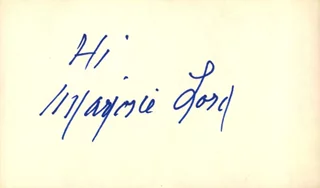 Hi
Marjorie Lord